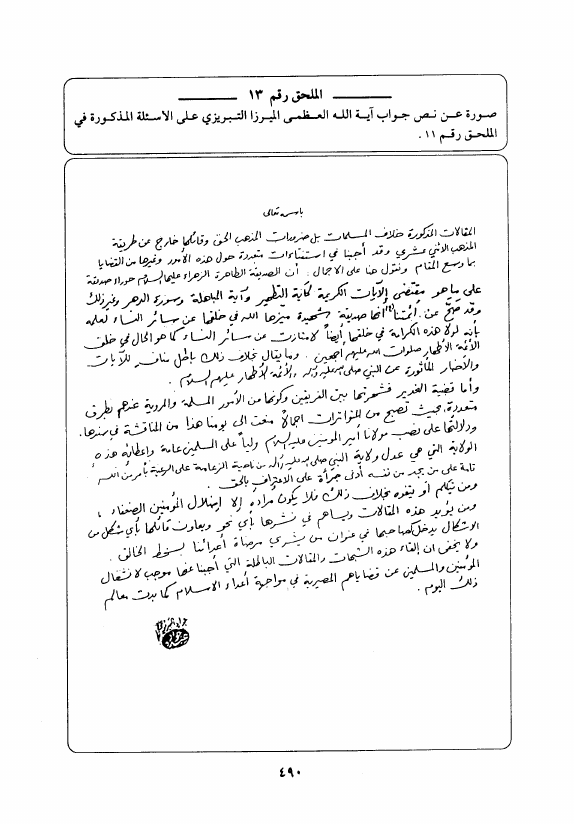 الملحق رقم ١٣
صورة عن نص جواب آية الله العظمى الميرزا التبريزي على الاسئلة المذكورة في
الملحق رقم ١١.
باسمه تعالى
المقالات المذكورة خلاف المسلمات بل ضروريات المذهب الحق وقائلها خارج عن طريقة
المذهب الاثني عشري وقد أجبنا في استفتاءات متعددة حول هذه الأمور وغيرها من القضايا
بما وسع المقام ونقول هنا على الاجمال: أن الصديقة الطاهرة الزهراء عليها السلام حوراء صديقة
على ما هو مقتضى الآيات الكريمة كآية التطهير وآية المباهلة وسورة الدهر وغير ذلك
وقد صح عن أئمتنا أنها صديقة شهيدة ميزها الله في خلقها عن سائر النساء لعلمه
بأنه لولا هذه الكرامة في خلقها أيضاً لامتازت عن سائر النساء كما هو الحال في خلق
الأئمة الأطهار صلوات الله عليهم أجمعين. وما يقال بخلاف ذلك باطل مناف للآيات
والأخبار المأثورة عن النبي صلى الله عليه وآله والأئمة الأطهار عليهم السلام.
وأما قضية الغدير فشهرتها بين الفريقين وكونها من الأمور المسلمة والمروية عندهم بطرق
متعددة بحيث تصبح من المتواترات اجمالاً منعت الى يومنا هذا من المناقشة في سندها.
ودلالتها على نصب مولانا أمير المؤمنين عليه السلام ولياً على المسلمين عامة وإعطائه هذه
الولاية التي هي عدل ولاية النبي صلى الله عليه وآله من ناحية الزعامة على الرعية بأمر من الله
تامة على من يجد من نفسه أدنى جرأة على الاعتراف بالحق.
ومن يتكلم أو يتفوه بخلاف ذلك فلا يكون مراده إلا إضلال المؤمنين الضعفاء،
ومن يؤيد هذه المقالات ويساهم في نشرها بأي نحو ويعاون قائلها بأي شكل من
الاشكال يدخل كصاحبها في عنوان من يشتري مرضاة أعدائنا بسخط الخالق.
ولا يخفى ان إلقاء هذه الشبهات والمقالات الباطلة التي أجبنا عنها موجب لانشغال
المؤمنين والمسلمين عن قضاياهم المصيرية في مواجهة أعداء الاسلام كما بدت معالم
ذلك اليوم.
٤٩٠